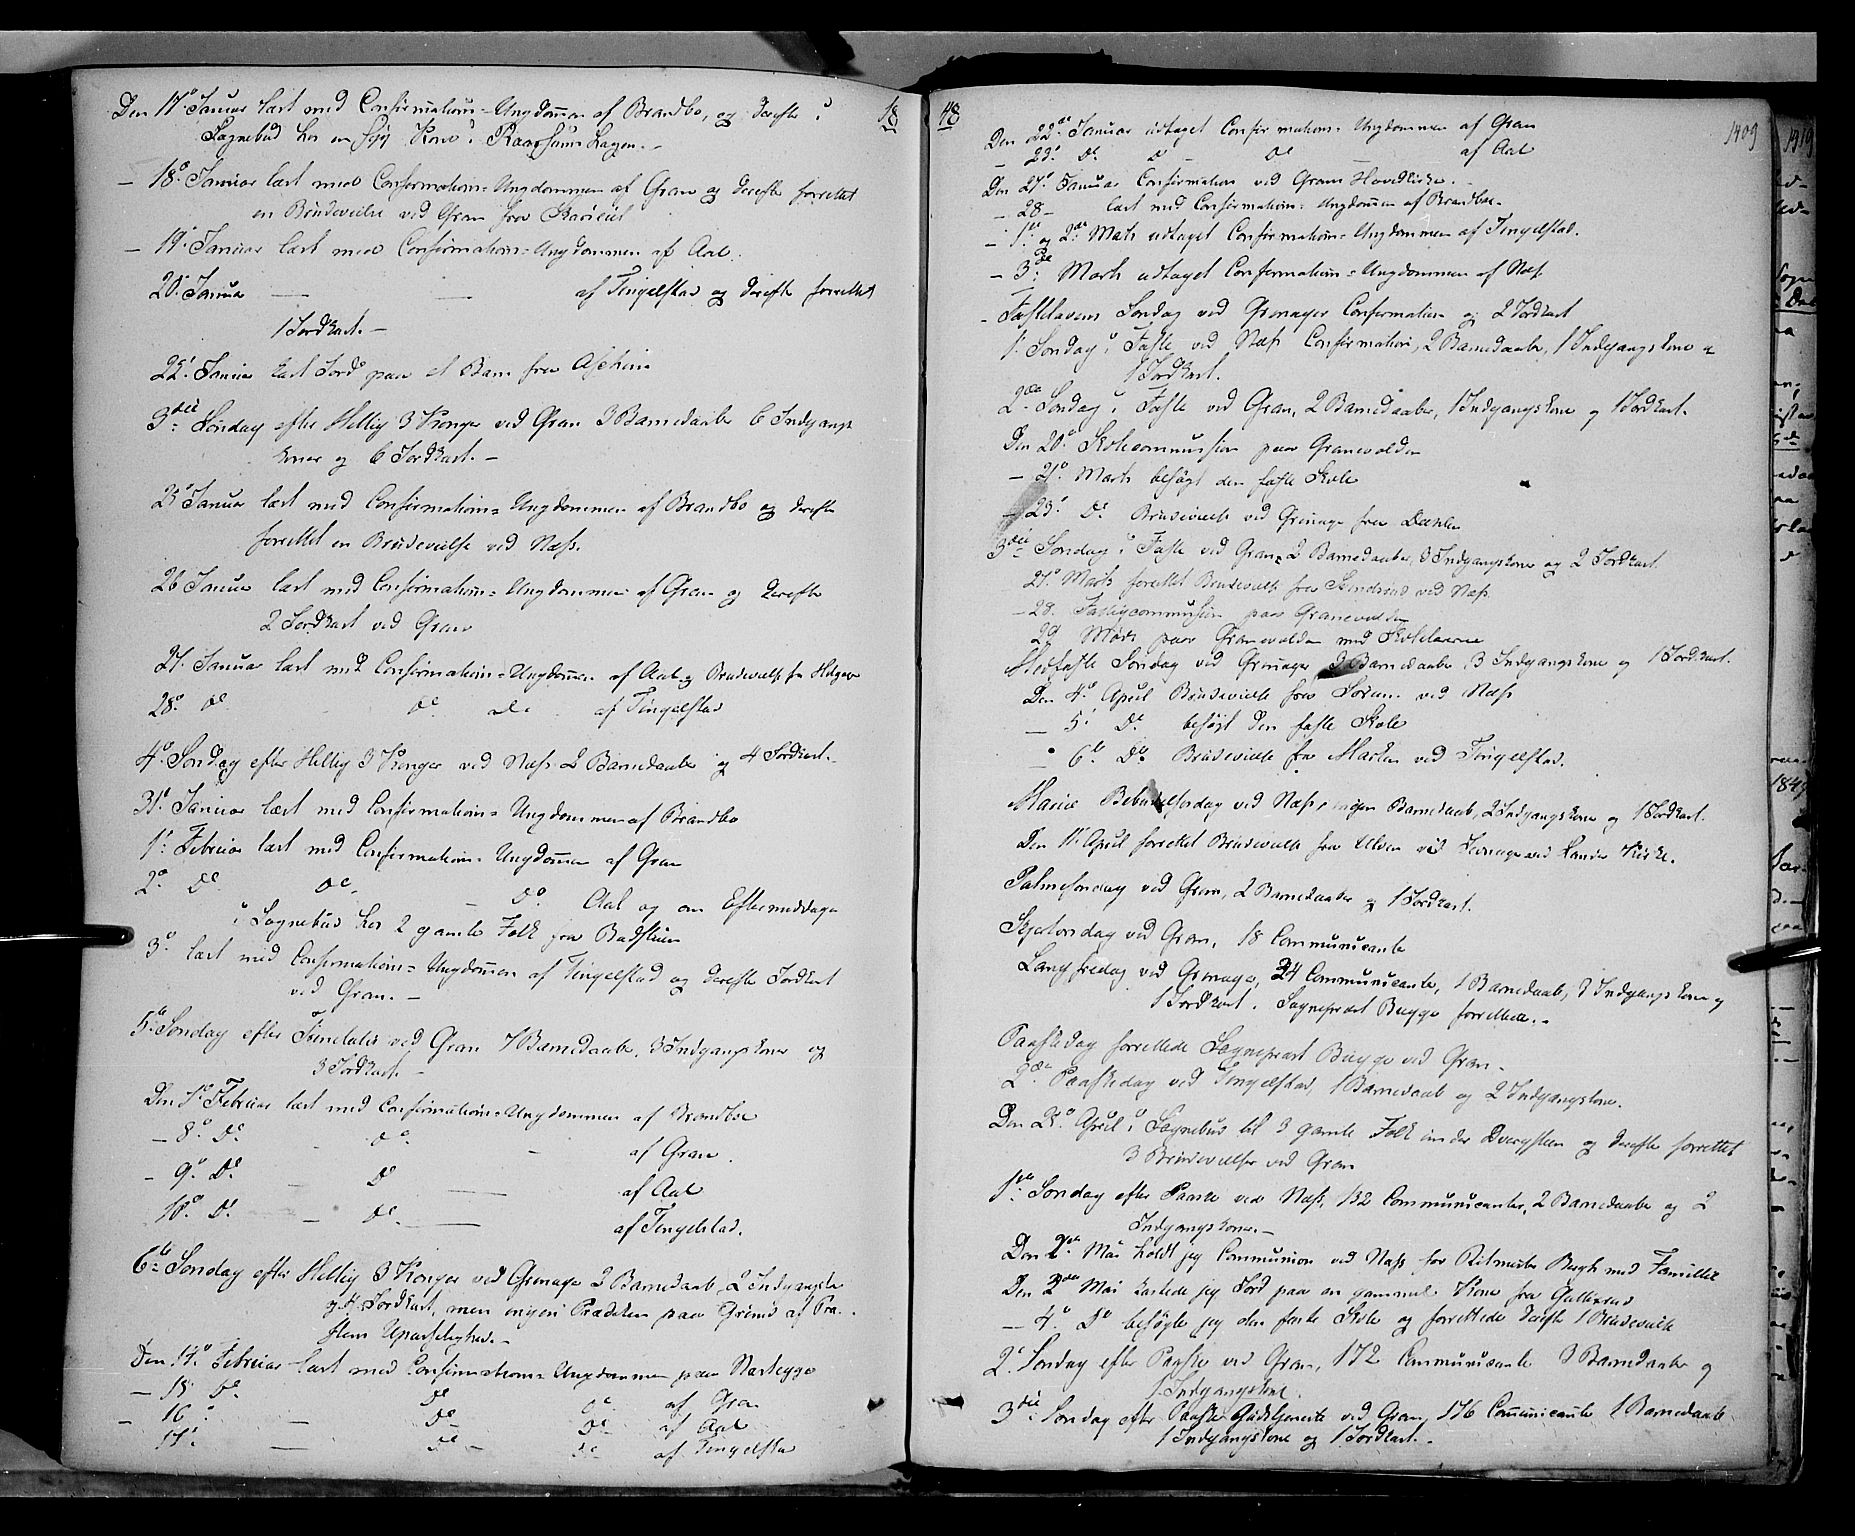 18
Den 17de Januar læst med Confirmations-Ungdommen af Brandbo, og derefter i
Sognebud hos en syg Kone i
— 18de Januar læst med Confirmations-Ungdommen af Gran og derefter forrettet
en Brudevielse ved Gran fra
— 19de Januar læst med Confirmations-Ungdommen af Aal.
20de Januar — — af Tingelstad og derefter forrettet
1 Jordkast. —
22de Januar kast Jord paa et Barn fra Aschim
3die Søndag efter Hellig 3 Konger ved Gran 3 Barnedaaber 6 Indgangs
koner og 6 Jordkast. —
25de Januar læst med Confirmations-Ungdommen af Brandbo og derefter
forrettet en Brudevielse ved Næss.
26 Januar læst med Confirmations-Ungdommen af Gran og derefter
2 Jordkast ved Gran
27. Januar læst med Confirmations-Ungdommen af Aal og Brudevielse fra
28de Do Do Do af Tingelstad
4de Søndag efter Hellig 3 Konger ved Næss 2 Barnedaaber og 4 Jordkast. —
31de Januar læst med Confirmations-Ungdommen af Brandbo
1ste Februar læst med Confirmations-Ungdommen af Gran
2de Do Do — Do Aal og om Eftermiddagen
i Sognebud hos 2 gamle Folk fra
3de læst med Confirmations-Ungdommen af Tingelstad og derefter Jordkast
ved Gran. —
5te Søndag efter ved Gran 7 Barnedaaber, 3 Indgangskoner og
3 Jordkast. —
Den 7de Februar læst med Confirmations-Ungdommen af Brandbo
— 8de Do Do — af Gran.
— 9de Do Do — af Aal
10de Do — Do — af Tingelstad.
6te Søndag efter Hellig 3 Konger ved Grinager 2 Barnedaab, 2 Indgangskoner
og 4 Jordkast, men ingen Prædiken paa Grund af Præ-
stens Upasselighed. —
Den 14de Februar læst med Confirmations-Ungdommen paa
— 15 Do Do Do af Gran
— 16 — Do Do af Aal
17 — Do — Do af Tingelstad
48
1409
Den 22de Januar udtaget Confirmations-Ungdommen af Gran
— 23de Do D — Do af Aal
Den 27de Januar Confirmation ved Grans Hovedkirke. —
— 28 — læst med Confirmations-Ungdommen af Brandboe —
— 1ste og 2de Marts udtaget Confirmations-Ungdommen af Tingelstad.
— 3de Marts udtaget Confirmations-Ungdommen af Næs
— Fastelavens Søndag ved Grinager Confirmation og 2 Jordkast
1. Søndag i Faste ved Næss Confirmation, 2 Barnedaaber, 1 Indgangskone og
1 Jordkast.
2den Søndag i Faste ved Gran, 2 Barnedaaber, 1 Indgangskone og 1 Jordkast.
Den 20de Skolecommission paa Granevolden
— 21de Marts besøgt den faste Skole
— 23de Do Brudevielse ved Grinager fra Dæhlen
3die Søndag i Faste ved Gran 2 Barnedaaber, 3 Indgangskoner og 2 Jordkast.
27de Marts forrettet Brudevielse fra ved Næs
— 28. Fattigcommission paa Granevolden
29 Marts paa Granevolden med Skolelærerne
Midfaste Søndag ved Grinager 3 Barnedaaber, 3 Indgangskoner og 1 Jordkast.
Den 4de April Brudevielse fra ved Næss
— 5te Do besøgt den faste Skole
— 6te Do Brudevielse fra Marken ved Tingelstad.
Mariæ Bebudelsesdag ved Næss, ingen Barnedaab, 2 Indgangskoner og 1 Jordkast.
Den 11te April forrettet Brudevielse fra ved Kirke.
Palmesøndag ved Gran, 2 Barnedaaber og 1 Jordkast.
Skjærtorsdag ved Gran, 18 Communicanter
Langfredag ved Grinager, 24 Communicanter, 1 Barnedaab, 3 Indgangskoner og
1 Jordkast. Sogneprest Bugge forrettede. —
Paaskedag forrettede Sogneprest Bugge ved Gran. —
2den Paaskedag ved Tingelstad, 1 Barnedaab og 2 Indgangskoner.
Den 25de April i Sognebud til 3 gamle Folk under Dvergsteen og derefter forrettet
3 Brudevielser ved Gran
1ste Søndag efter Paaske ved Næss, 132 Communicanter, 2 Barnedaaber og 2
Indgangskoner. —
Den 2den Mai holdt jeg Communion ved Næss for Ritmester Bergh med Familie
Den 3die Mai kastede jeg Jord paa en gammel Kone fra
— 4de Do besøgte jeg den faste Skole og forrettede derefter 1 Brudevielse
2den Søndag efter Paaske ved Gran, 172 Communicanter 3 Barnedaaber og
1 Indgangskone.
3die Søndag efter Paaske Gudstjeneste ved Gran, 176 Communicanter 1 Barnedaab
1 Indgangskone og 1 Jordkast. —